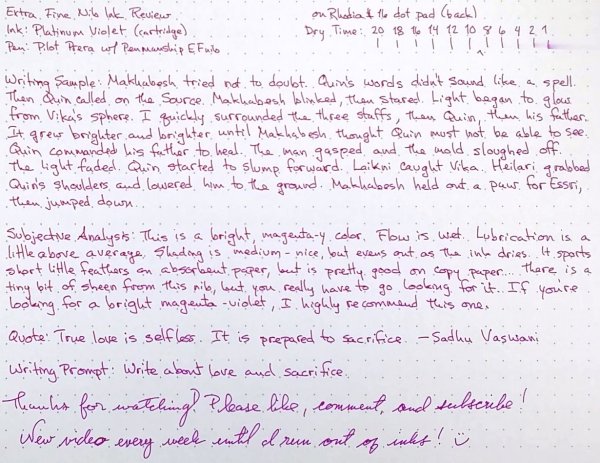 Extra Fine Nib Ink Review
on Rhodia # 16 dot pad (back)
Ink: Platinum Violet (cartridge)
Dry Time: 20 18 16 14 12 10 8 6 4 2 1
Pen: Pilot Prera w/ Penmanship EF nib
Writing Sample: Makhabesh tried not to doubt. Quin's words didn't sound like a spell.
Then Quin called on the Source. Makhabesh blinked, then stared. Light began to glow
from Vika's sphere. I quickly surrounded the three staffs, then Quin, then his father.
It grew brighter and brighter until Makhabesh thought Quin must not be able to see.
Quin commanded his father to heal. The man gasped and the mold sloughed off.
The light faded. Quin started to slump forward. Laikni caught Vika. Heilari grabbed
Quin's shoulders and lowered him to the ground. Makhabesh held out a paw for Essri,
then jumped down.
Subjective Analysis: This is a bright, magenta-y color. Flow is wet. Lubrication is a
little above average. Shading is medium - nice, but evens out as the ink dries. It sports
short little feathers on absorbent paper, but is pretty good on copy paper... There is a
tiny bit of sheen from this nib, but you really have to go looking for it. If you're
looking for a bright magenta-violet, I highly recommend this one.
Quote: True love is selfless. It is prepared to sacrifice. - Sadhu Vaswani
Writing Prompt: Write about love and sacrifice.
Thanks for watching! Please like, comment, and subscribe!
New video every week until I run out of inks! :)